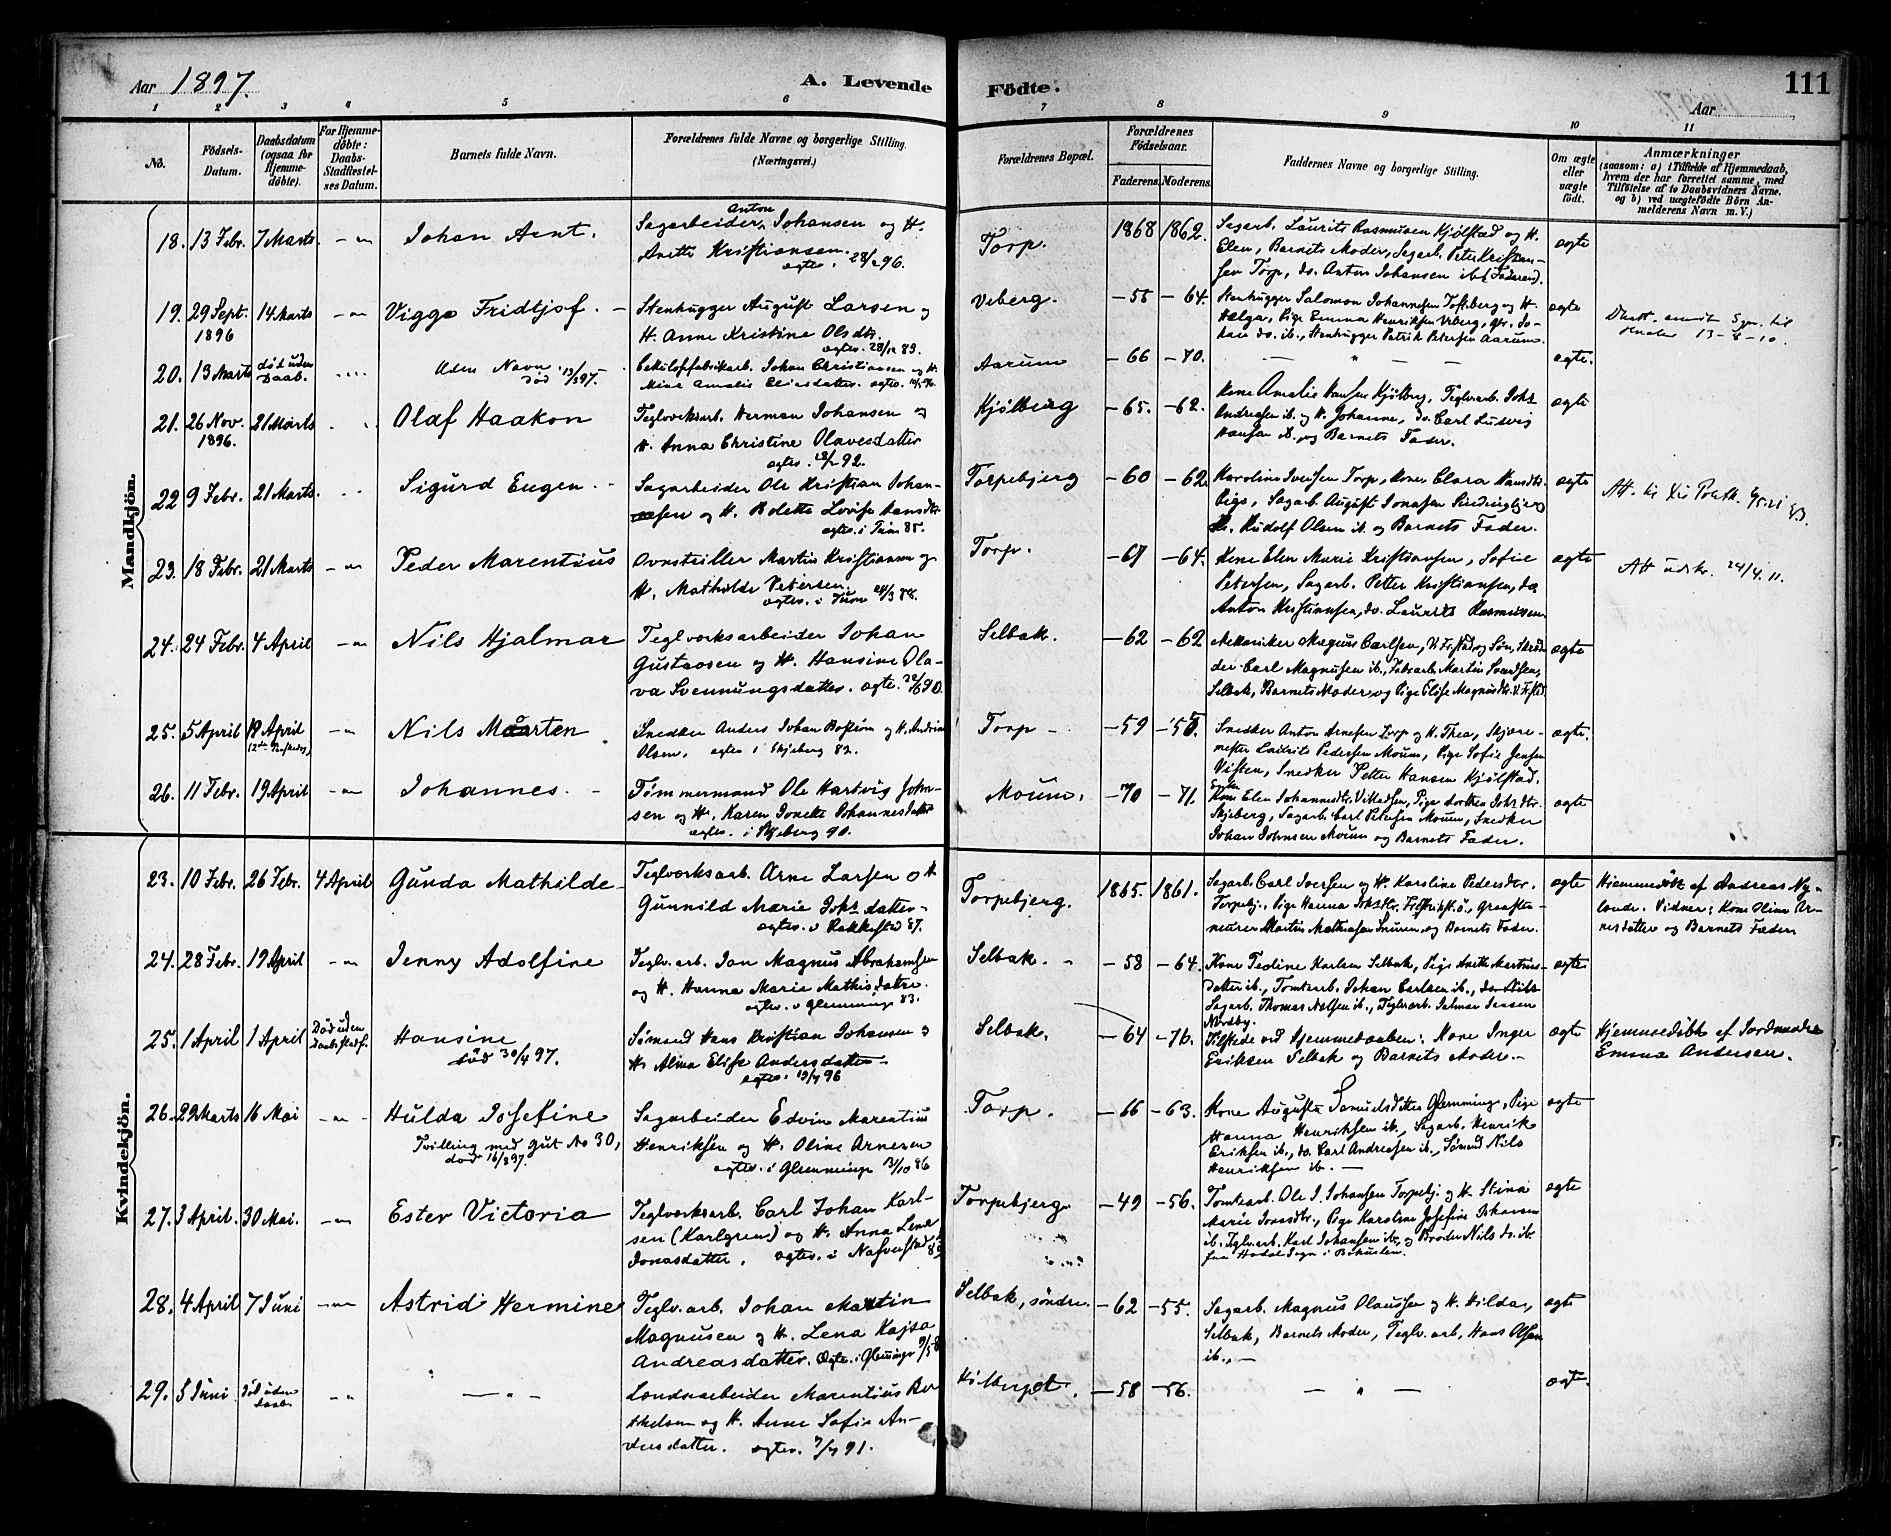 Aar 1897.
A. Levende
Födte.
111
Aar
1 2 3 4 5 6 7 8 9 10 11
No.
Födsels-Datum.
Daabsdatum (ogsaa for Hjemme-døbte).
For Hjemme-døbte: Daabs-Stadfæstel-ses Datum.
Barnets fulde Navn.
Forældrenes fulde Navne og borgerlige Stilling. (Næringsvei.)
Forældrenes Bopæl.
Forældrenes Födselsaar.
Faderens. Moderens.
Faddernes Navne og borgerlige Stilling.
Om ægte eller uægte födt.
Anmærkninger
(saasom: a) i Tilfælde af Hjemmedaab,
hvem der har forrettet samme, med
Tilföielse af to Daabsvidners Navne,
og b) ved uægtefödte Börn An-
melderens Navn m. V.)
Mandkjön.
18. 13 Febr. 7 Marts. Johan Arnt.
Sagarbeider Anton Johansen og H.
Anette Kristiansen. ægtev. 28/12 96.
Torp. 1868 1862.
Sagarb. Laurits Rasmusen Kjølstad og H.
Elen, Barnets Moder, Sagarb. Peter Kristian-
sen Torp, do. Anton Johansen ib. (Faderen).
ægte
19. 29 Sept. 1896 14 Marts Viggo Fridtjof.
Stenhugger August Larsen og
H. Anne Kristine Olsdtr. ægtev. 28/12 89.
Veberg. -55 -64.
Stenhugger Salomon Johannesen Tofteberg og H.
Helga, Pige Emma Henriksen Veberg, Gbr. Jo-
han do. ib., Stenhugger Patrik Petersen Aarum.
ægte
20. 13 Marts død uden Daab. Uden Navn død 13/3 97.
Johan Christiansen og H.
Mine Amalie Eliesdatter. ægtev.
Aarum -66 -70.
ægte.
21. 26 Nov. 1896. 21 Marts Olaf Haakon
Teglverksarb. Herman Johansen og
H. Anna Christine Olavesdatter
ægtev. 92.
Kjølberg -65. -62.
Kone Amalie Hansen Kjølberg, Teglverarb. Johs.
Andresen ib. og H. Johanne, do. Carl Ludvig
Hansen ib., og Barnets Fader.
ægte
22 9 Febr. 21 Marts. Sigurd Eugen.
Sagarbeider Ole Kristian Johan-
nesen og H. Bolette Lovise Hansdtr.
ægtev. i Tune 85.
Torpebjerg -60 -62.
Karoline Iversen Torp, Kone Clara Hansdtr.
Pige, Sagarb. August Jonasen
Rudolf Olsen ib. og Barnets Fader.
ægte
23. 18 Febr. 21 Marts Peder Marentius
Martin Kristiansen og
H. Mathilde Petersen.
ægtev. i Tune 88.
Torp. -67 -64.
Kone Elen Marie Kristiansen, Sofie
Petersen, Sagarb. Petter Kristiansen, do.
Anton Kristiansen, do. Laurits Rasmussen
ægte
Att udstr. 24/4 11.
24. 24 Febr. 4 April Nils Hjalmar
Teglverksarbeider Johan
Gustavsen og H. Hansine Ola-
va Svennungsdatter. ægtev. 90.
Selbak. -62 -62
Mekaniker Magnus Carlsen, V. Fr.stad og Søn, Skræd-
der Carl Magnusen ib., Fabr.arb. Martin Svendsen,
Selbak, Barnets Moder, og Pige Elise Magnusdtr. V. Fr.stad
ægte
25. 5 April 19 April (2den Paaskedag) Nils Maarten
Snedker Anders Johan Boström og H. Andrine
Olsen, ægtev i Skjeberg 82.
Torp -59 -50.
Snedker Anton Arnesen Torp og H. Thea,
mester Laurits Pedersen Moum, Pige Sofie Jensen
Visten, Snedker Petter Hansen Kjølstad.
ægte.
26. 11 Febr. 19 April Johannes.
Tømmermand Ole Hartvig John-
sen og H. Karen Jonette Johannesdatter
ægtev. i Skjeberg 90.
Moum, -70 -71.
Kone Elen Johannesdtr. Pige Dorthea Johsdtr.
Skjeberg, Sagarb. Carl Petersen Moum, Snedker
Johan Johnsen Moum og Barnets Fader.
ægte
Kvindekjön.
23. 10 Febr. 26 Febr. 4 April Gunda Mathilde
Teglverksarb. Arne Larsen og H
Gunnild Marie Johsdatter
ægtev. i Rakkestad 87.
Torpebjerg. 1865. 1861.
Sagarb. Carl Iversen og H. Karoline Pedersdtr.
Torpebj. Pige Hanna
Martin Mathiasen og Barnets Fader.
ægte
Hjemmedøbt af Andreas Ny-
lende. Vidner: Kone Oline Ar-
nesdatter og Barnets Fader
24. 28 Febr. 19 April Jenny Adolfine
Teglv.arb. Jon Magnus Abrahamsen
og H. Hanna Marie Mathisdatter.
ægtev. i Glemminge 83.
Selbak. -58 -64.
Kone Tedine Karlsen Selbak, Pige Anette Martinus-
datter ib., Tomtearb. Johan Carlsen ib., do. Nils
Sagarb. Thomas Nelsen ib., Teglverarb. Jelmar Jensen
Nørsby.
ægte
25. 1 April 1 April Død uden Daabsstadf. Hansine død 30/4 97.
Sømand Hans Kristian Johansen og
H. Alma Elise Andersdatter
ægtev. 96
Selbak. -64 -76.
Tilstede ved Hjemmedaaben: Kone Inger
Eriksen Selbak og Barnets Moder.
ægte
Hjemmedøbt af Jordmoder
Emma Andersen.
26. 29 Marts 16 Mai Hulda Josefine
Tvilling med gut No 30, død 16/8 97.
Sagarbeider Edvin Marentius
Henriksen og H. Oline Arnesen
ægtev. i Glemminge 31/10 86
Torp. -66 -63.
Kone Augusta Samuelsdatter Glemminge, Pige
Hanna Henriksen ib., Sagarb. Henrik
Eriksen ib., do. Carl Andreasen ib., Sømand Nils
Henriksen ib.
ægte
27. 3 April. 30 Mai. Ester Victoria
Teglverksarb. Carl Johan Karl-
sen (Karlgren) og H. Anna Lena
Jonasdatter. ægtev. i Naverstad
Torpebjerg. -49 -56.
Tomtearb. Ole J. Johansen Torpebj. og H. Stina
Marie Jonasdtr., Pige Karoline Josefine Johansen
ib. Teglv.arb. Karl Johansen ib., og Broder Nils do. ib.
fra Sogn i Bohuslen.
ægte
28. 4 April 7 Juni Astrid Hermine
Teglv.arb. Johan Martin
Magnusen og H. Lena Kajsa
Andreasdatter. Ægtev. i Glemminge
Selbak, søndre. -62 -55.
Sagarb. Magnus Olaussen og H. Hilda,
Selbak, Barnets Moder, Teglv.arb. Hans Olsen
ib.,
ægte
29. 5 Juni død uden Daab
Landarbeider Marentius Ber-
thelsen og H. Anne Sofie An-
dersdatter. ægtev. 91.
-58 -56.
ægte.